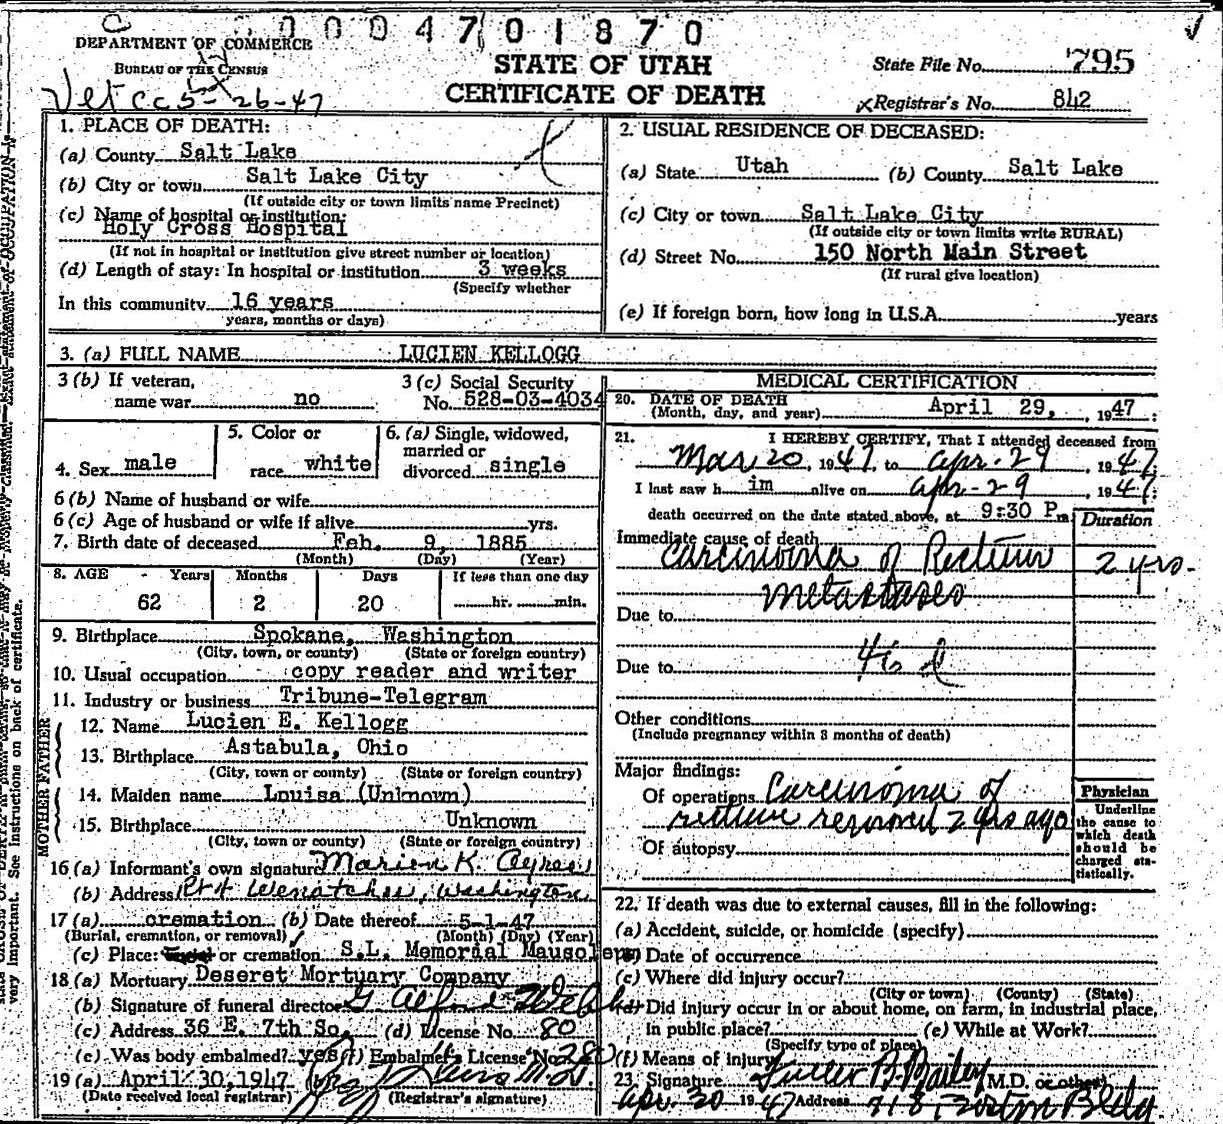 0004701870
DEPARTMENT OF COMMERCE
BUREAU OF THE CENSUS
STATE OF UTAH
CERTIFICATE OF DEATH
State File No. 795
Registrar's No. 842
Vet cc 5-26-47
1. PLACE OF DEATH:
(a) County Salt Lake
(b) City or town Salt Lake City
(If outside city or town limits name Precinct)
(c) Name of hospital or institution:
Holy Cross Hospital
(If not in hospital or institution give street number or location)
(d) Length of stay: In hospital or institution 3 weeks
(Specify whether
In this community 16 years
years, months or days)
2. USUAL RESIDENCE OF DECEASED:
(a) State Utah (b) County Salt Lake
(c) City or town Salt Lake City
(If outside city or town limits write RURAL)
(d) Street No. 150 North Main Street
(If rural give location)
(e) If foreign born, how long in U.S.A. years
3. (a) FULL NAME LUCIEN KELLOGG
3 (b) If veteran,
name war no
3 (c) Social Security
No. 528-03-4034
4. Sex male
5. Color or
race white
6. (a) Single, widowed,
married or
divorced single
6 (b) Name of husband or wife
6 (c) Age of husband or wife if alive yrs.
7. Birth date of deceased Feb. 9, 1885
(Month) (Day) (Year)
8. AGE - Years Months Days If less than one day
62 2 20 hr. min.
9. Birthplace Spokane, Washington
(City, town, or county) (State or foreign country)
10. Usual occupation copy reader and writer
11. Industry or business Tribune-Telegram
FATHER
12. Name Lucien E. Kellogg
13. Birthplace Astabula, Ohio
(City, town or county) (State or foreign country)
MOTHER
14. Maiden name Louisa (Unknown)
15. Birthplace Unknown
(City, town or county) (State or foreign country)
16 (a) Informant's own signature Marion K. Ayres
(b) Address Wenatchee, Washington
17 (a) cremation (b) Date thereof 5-1-47
(Burial, cremation, or removal) (Month) (Day) (Year)
(c) Place: or cremation S.L. Memorial Mausoleum
18 (a) Mortuary Deseret Mortuary Company
(b) Signature of funeral director
(c) Address 36 E. 7th So. (d) License No. 80
(e) Was body embalmed? yes (f) Embalmer's License No. 280
19 (a) April 30, 1947 (b)
(Date received local registrar) (Registrar's signature)
MEDICAL CERTIFICATION
20. DATE OF DEATH
(Month, day, and year) April 29, 1947
21. I HEREBY CERTIFY, That I attended deceased from
Mar 20, 1947, to Apr-29, 1947;
I last saw him alive on Apr-29, 1947;
death occurred on the date stated above, at 9:30 P m
Duration
Immediate cause of death
Carcinoma of Rectum 2 yrs.
metastases
Due to
Due to 46 d
Other conditions
(Include pregnancy within 3 months of death)
Major findings:
Of operations Carcinoma of
rectum removed 2 yrs ago
Of autopsy
Physician
Underline
the cause to
which death
should be
charged sta-
tistically.
22. If death was due to external causes, fill in the following:
(a) Accident, suicide, or homicide (specify)
(b) Date of occurrence
(c) Where did injury occur?
(City or town) (County) (State)
(d) Did injury occur in or about home, on farm, in industrial place,
in public place? (e) While at Work?
(Specify type of place)
(f) Means of injury
23. Signature Fuller B. Bailey M.D. or other)
Apr. 30 1947 Address 718 Boston Bldg
very important. See instructions on back of certificate.